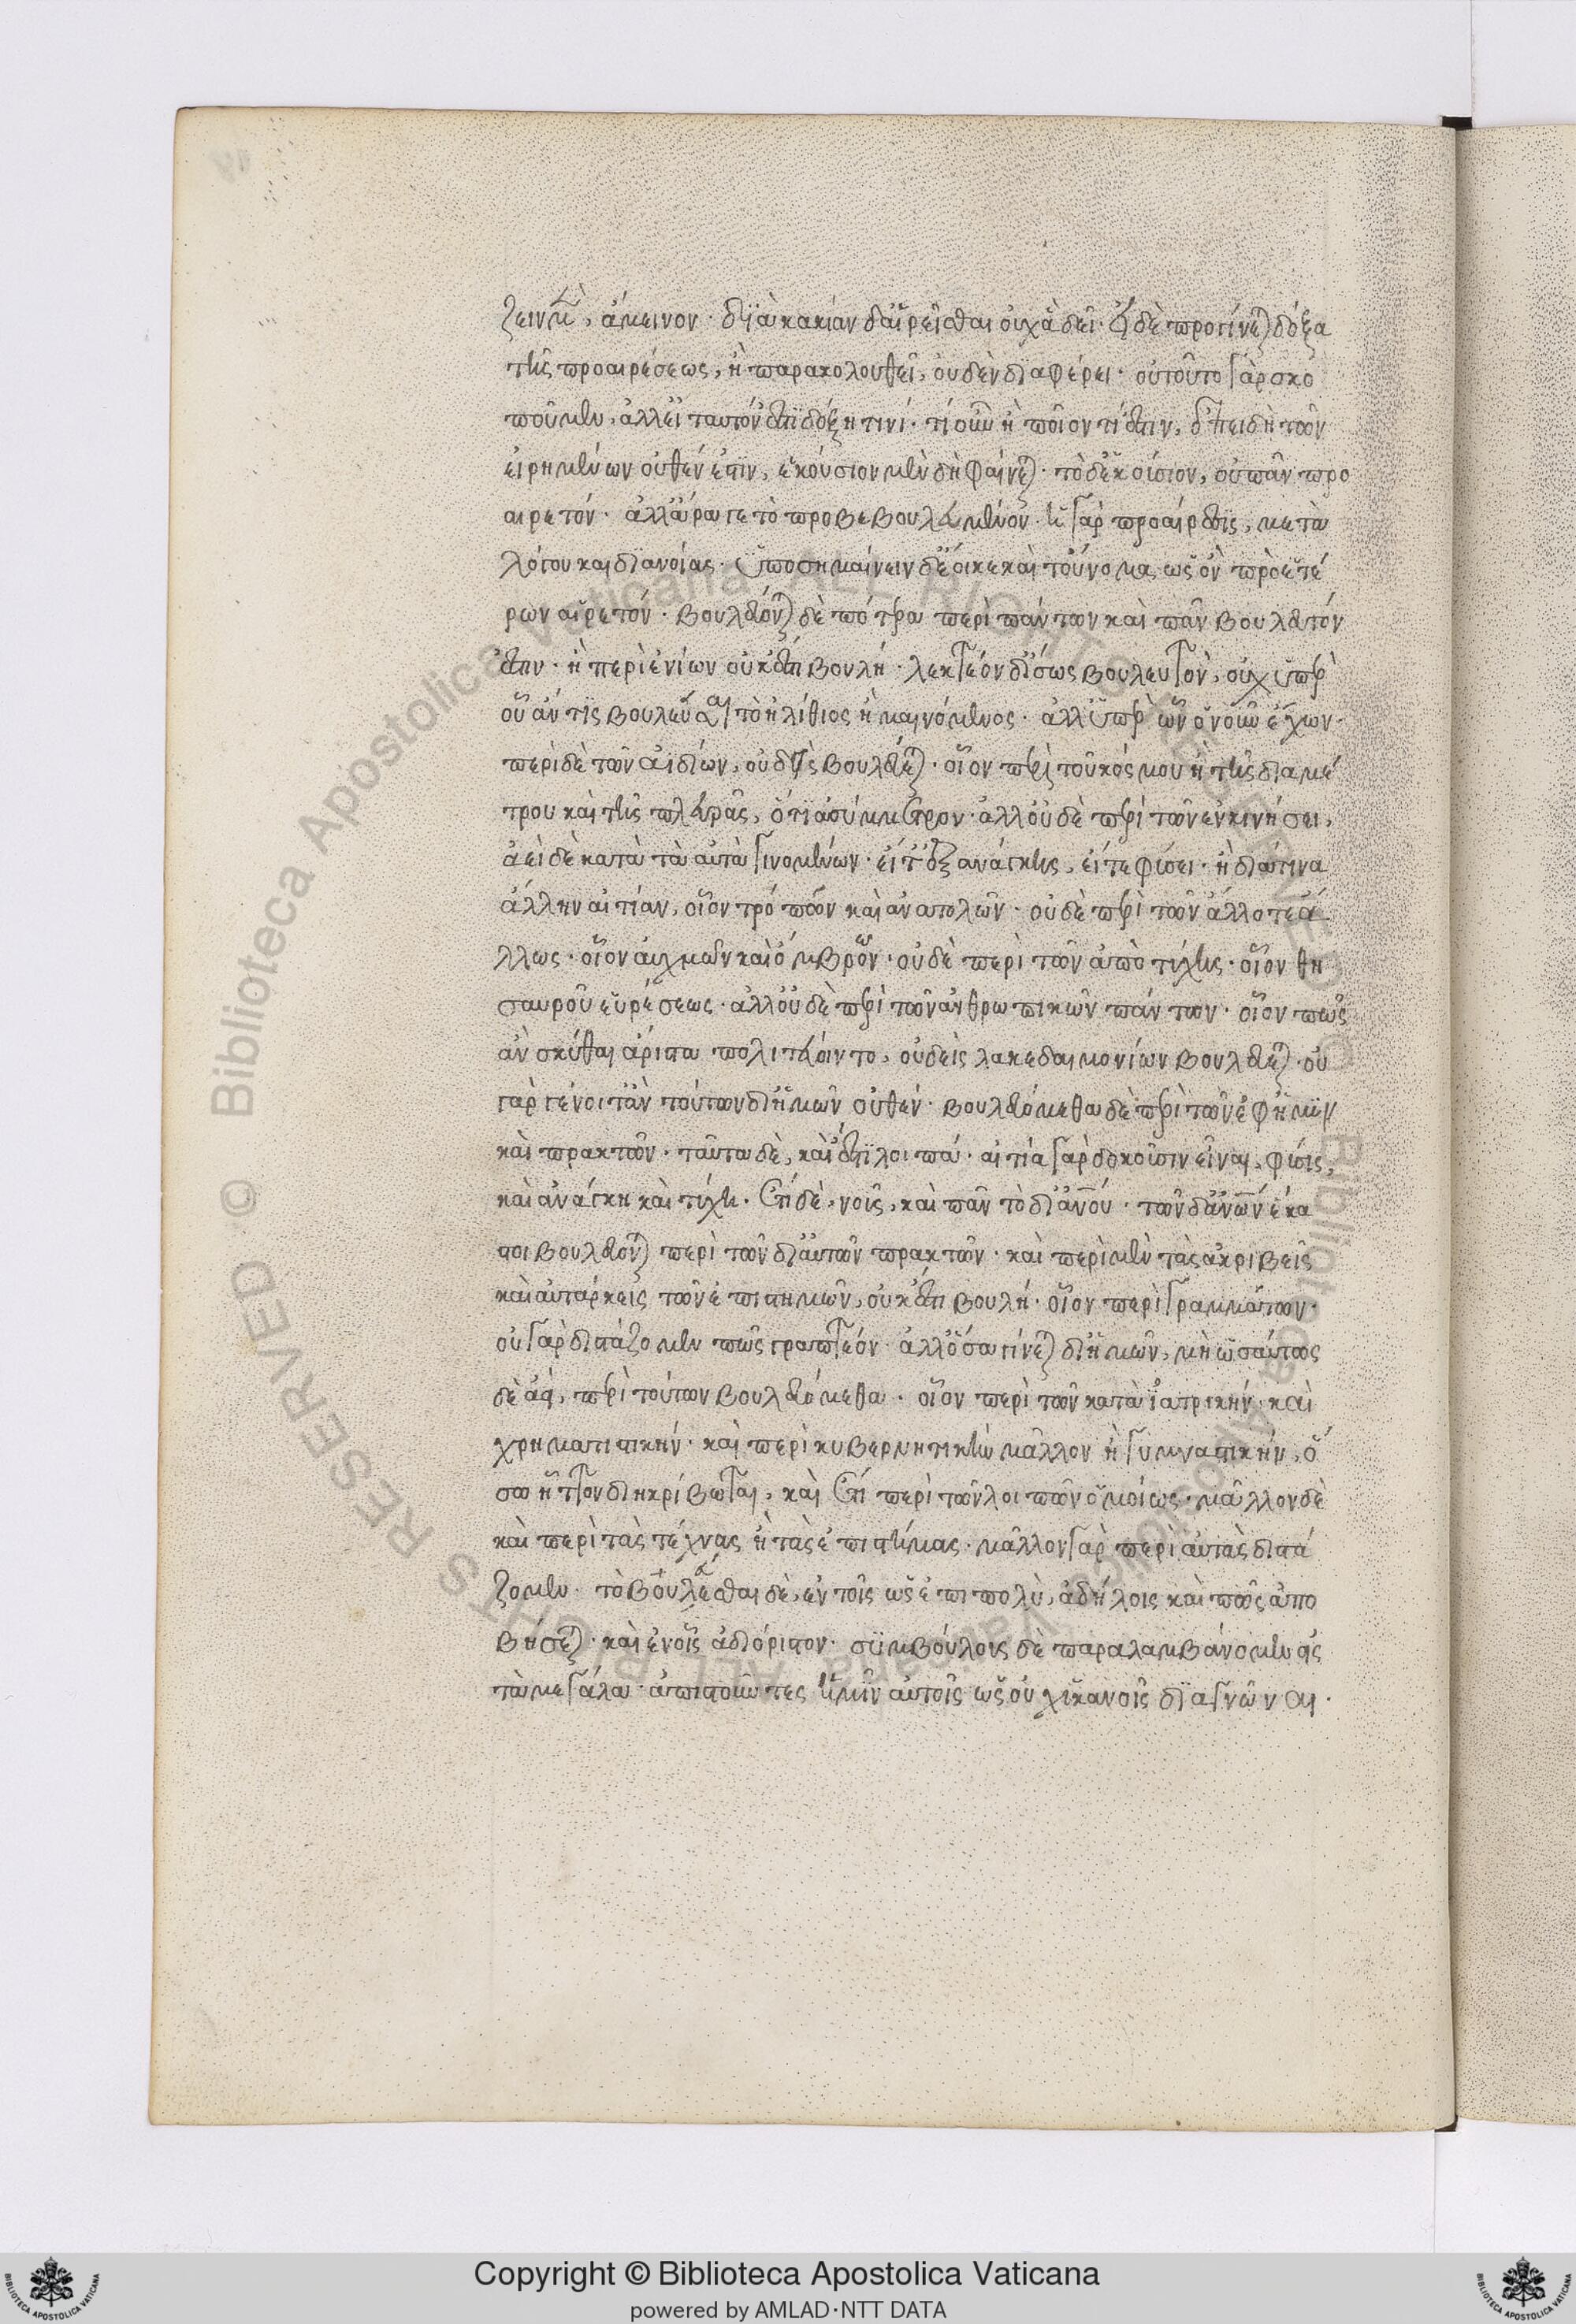 ζειν μὲν, ἄμεινον· διὰ κακίαν δ' αἱρεῖσθαι οὐχ ἃ δεῖ· εἰ δὲ προγίνεται δόξα
τῆς προαιρέσεως, ἢ παρακολουθεῖ, οὐδὲν διαφέρει· οὐ τοῦτο γὰρ σκο
ποῦμεν, ἀλλ' εἰ ταυτόν ἐστι δόξῃ τινί· τί οὖν ἢ ποῖον τί ἐστιν, ἐπειδὴ τῶν
εἰρημένων οὐθέν ἐστιν, ἑκούσιον μὲν δὴ φαίνεται· τὸ δ' ἑκούσιον, οὐ πᾶν προ
αιρετόν· ἀλλ' ἄρα γε τὸ προβεβουλευμένον· ἡ γὰρ προαίρεσις, μετὰ
λόγου καὶ διανοίας· ὑποσημαίνειν δ' ἔοικε καὶ τοὔνομα, ὡς ὂν πρὸ ἑτέ
ρων αἱρετόν· βουλεύονται δὲ πότερα περὶ πάντων καὶ πᾶν βουλευτόν
ἐστιν· ἢ περὶ ἐνίων οὐκ ἔστι βουλή· λεκτέον δ' ἴσως βουλευτὸν, οὐχ ὑπὲρ
οὗ ἄν τις βουλεύσαιτο ἠλίθιος ἢ μαινόμενος· ἀλλ' ὑπὲρ ὧν ὁ νοῦν ἔχων·
περὶ δὲ τῶν ἀϊδίων, οὐδεὶς βουλεύεται· οἷον περὶ τοῦ κόσμου ἢ τῆς διαμέ
τρου καὶ τῆς πλευρᾶς, ὅτι ἀσύμμετρον· ἀλλ' οὐδὲ περὶ τῶν ἐν κινήσει,
ἀεὶ δὲ κατὰ τὰ αὐτὰ γινομένων· εἴτ' ἐξ ἀνάγκης, εἴτε φύσει· ἢ διά τινα
ἄλλην αἰτίαν, οἷον τροπῶν καὶ ἀνατολῶν· οὐδὲ περὶ τῶν ἄλλοτε ἄ
λλως· οἷον αὐχμῶν καὶ ὄμβρων· οὐδὲ περὶ τῶν ἀπὸ τύχης· οἷον θη
σαυροῦ εὑρέσεως· ἀλλ' οὐδὲ περὶ τῶν ἀνθρωπικῶν πάντων· οἷον πῶς
ἂν σκύθαι ἄριστα πολιτεύοιντο, οὐδεὶς λακεδαιμονίων βουλεύεται· οὐ
γὰρ γένοιτ' ἂν τούτων δι' ἡμῶν οὐθέν· βουλευόμεθα δὲ περὶ τῶν ἐφ' ἡμῖν
καὶ πρακτῶν· ταῦτα δὲ, καὶ ἔστι λοιπά· αἰτία γὰρ δοκοῦσιν εἶναι, φύσις,
καὶ ἀνάγκη καὶ τύχη· ἔτι δὲ, νοῦς, καὶ πᾶν τὸ δι' ἀνου· τῶν δ' ἀνων ἕκα
στοι βουλεύονται περὶ τῶν δι' αὐτῶν πρακτῶν· καὶ περὶ μὲν τὰς ἀκριβεῖς
καὶ αὐτάρκεις τῶν ἐπιστημῶν, οὐκ ἔστι βουλή· οἷον περὶ γραμμάτων·
οὐ γὰρ διστάζομεν πῶς γραπτέον· ἀλλ' ὅσα γίνεται δι' ἡμῶν, μὴ ὡσαύτως
δὲ ἀεὶ, περὶ τούτων βουλευόμεθα· οἷον περὶ τῶν κατὰ ἰατρικήν, καὶ
χρηματιστικήν· καὶ περὶ κυβερνητικὴν μᾶλλον ἢ γυμναστικήν, ὅ
σω ἧττον διηκρίβωται, καὶ ἔτι περὶ τῶν λοιπῶν ὁμοίως· μᾶλλον δὲ
καὶ περὶ τὰς τέχνας ἢ τὰς ἐπιστήμας· μᾶλλον γὰρ περὶ αὐτὰς διστά
ζομεν· τὸ βουλεύεσθαι δὲ, ἐν τοῖς ὡς ἐπιπολὺ, ἀδήλοις καὶ πῶς ἀπο
βήσεται· καὶ ἐν οἷς ἀδιόριστον· συμβούλους δὲ παραλαμβάνομεν εἰς
τὰ μεγάλα· ἀπιστοῦντες ἡμῖν αὐτοῖς ὡς οὐχ ἱκανοῖς διαγνῶναι·
Biblioteca Apostolica Vaticana ALL RIGHTS RESERVED ©
Copyright © Biblioteca Apostolica Vaticana
powered by AMLAD·NTT DATA